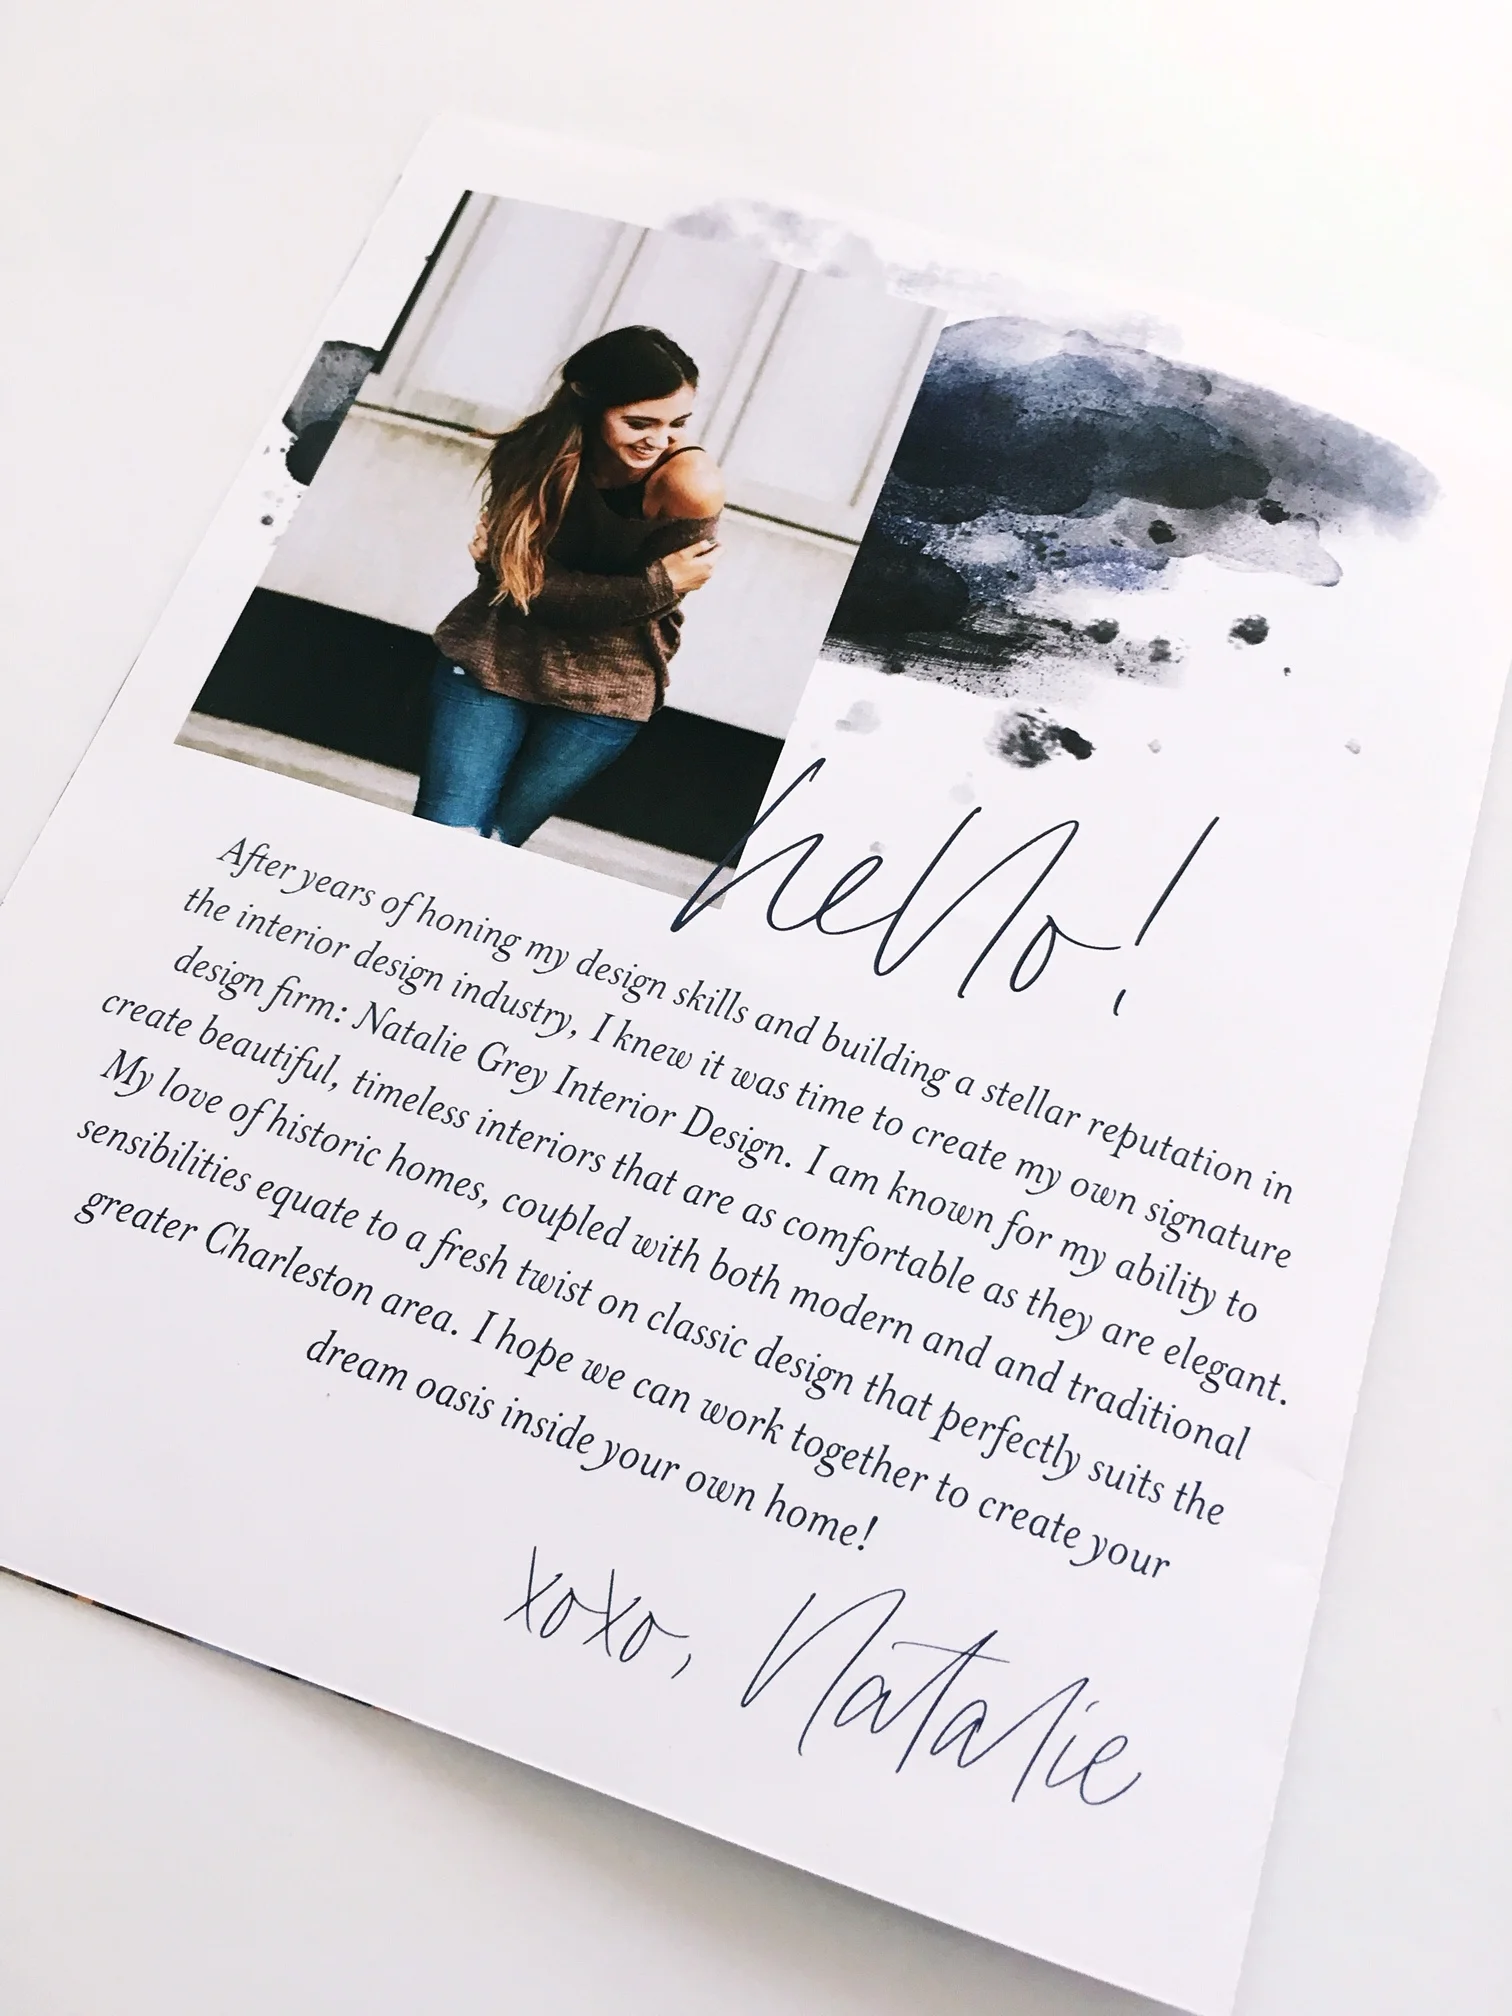 hello!
After years of honing my design skills and building a stellar reputation in
the interior design industry, I knew it was time to create my own signature
design firm: Natalie Grey Interior Design. I am known for my ability to
create beautiful, timeless interiors that are as comfortable as they are elegant.
My love of historic homes, coupled with both modern and and traditional
sensibilities equate to a fresh twist on classic design that perfectly suits the
greater Charleston area. I hope we can work together to create your
dream oasis inside your own home!
xoxo, Natalie